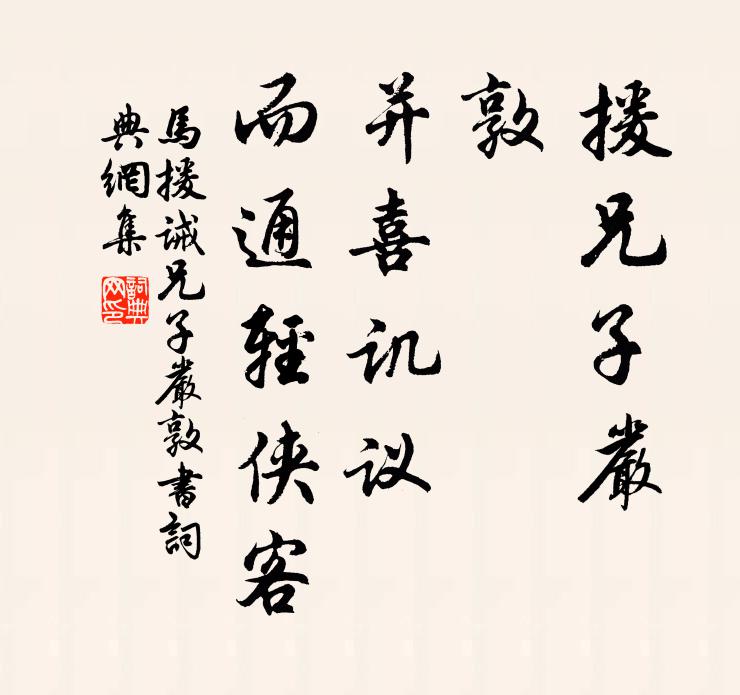 援兄子嚴
敦
并喜讥议
而通輕俠客
馬援诫兄子嚴敦書詞
典網集
詞典
网印